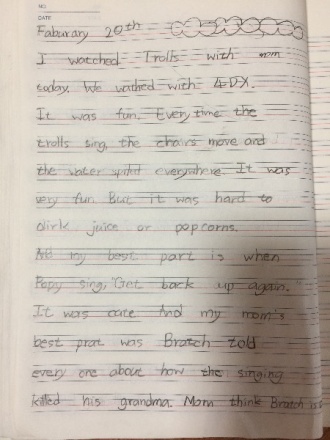 NO.
DATE
Faburary 20th
I watched Trolls with mom
today. We wathed with 4DX.
It was fun. Every time the
trolls sing, the chairs move and
the water splshd everywhere. It was
very fun. But it was hard to
drirk juice or popcorns.
And my best part is when
Popy sing, "Get back up again."
It was cute. And my mom's
best prat was Bratch told
every one about how the singing
killed his grandma. Mom think Bratch is